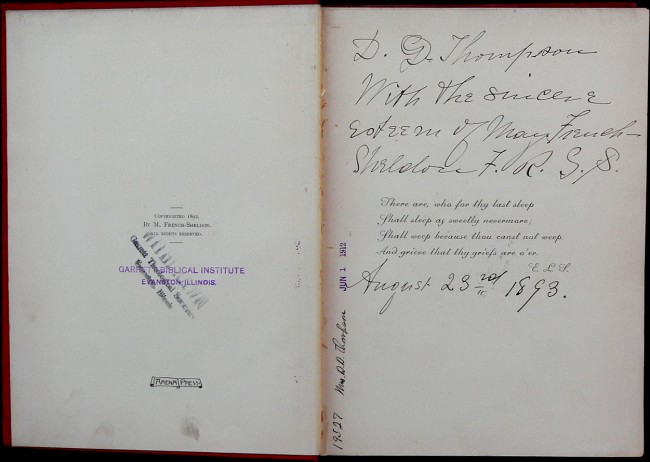 COPYRIGHTED 1892,
BY M. FRENCH-SHELDON.
ALL RIGHTS RESERVED.
WITHDRAWN
GARRETT BIBLICAL INSTITUTE
EVANSTON, ILLINOIS.
Garrett Theological Seminary
Evanston, Illinois
ARENA PRESS
D. D. Thompson
With the sincere
esteem of May French-
Sheldon F. R. G. S.
There are, who for thy last sleep
Shall sleep as sweetly nevermore;
Shall weep because thou canst not weep,
And grieve that thy griefs are o'er.
E. L. S.
August 23rd 1893.
JUN 1 1912
Mrs. D. D. Thompson
19527